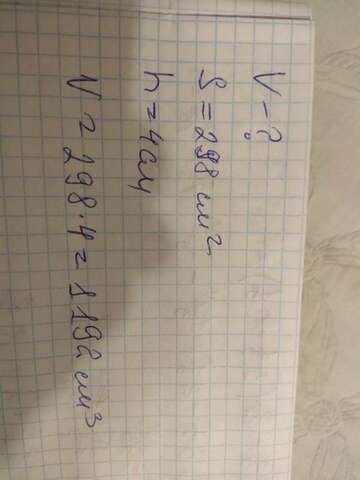 V - ?
S = 298 см²
h = 4 см
V = 298 · 4 = 1192 см³